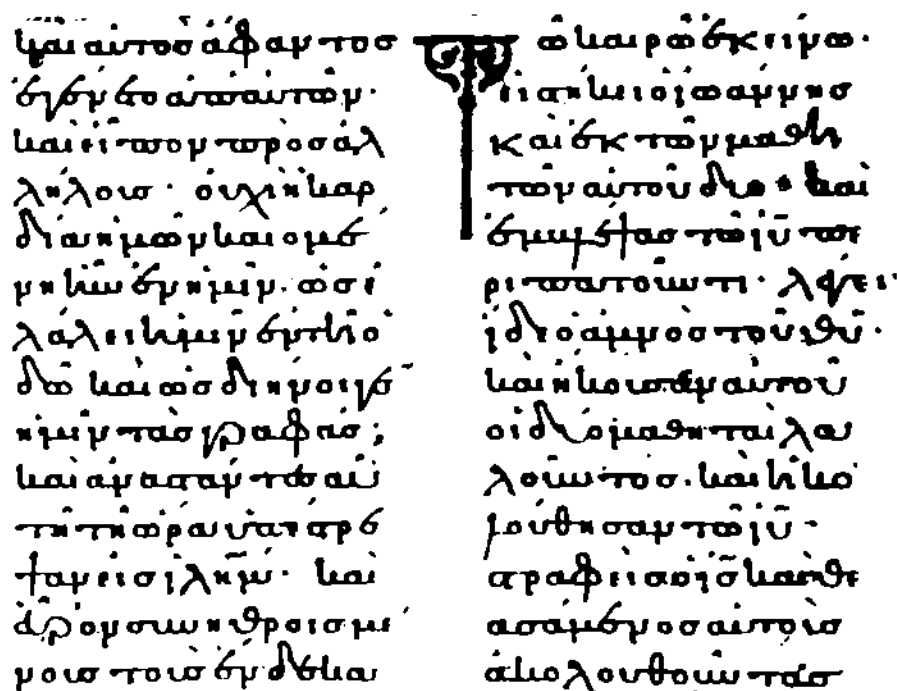 καὶ αὐτὸς ἄφαντος
ἐγένετο ἀπ' αὐτῶν·
καὶ εἶπον πρὸς ἀλ
λήλους· οὐχὶ ἡ καρ
δία ἡμῶν καιομέ
νη ἦν ἐν ἡμῖν· ὡς ἐ
λάλει ἡμῖν ἐν τῆ ὁ
δῶ καὶ ὡς διήνοιγε
ἡμῖν τὰς γραφάς;
καὶ ἀναστάντες αὐ
τῆ τῆ ὥρα ὑπέστρε
ψαν εἰς ἱλῆμ· καὶ
εὗρον συνηθροισμέ
νους τοὺς ἕνδεκα
Τῶ καιρῶ ἐκείνω·
εἱστήκει ὁ ἰωάννης
καὶ ἐκ τῶν μαθη
τῶν αὐτοῦ δύο· καὶ
ἐμβλέψας τῶ ἰῦ πε
ριπατοῦντι· λέγει·
ἴδε ὁ ἀμνὸς τοῦ θῦ·
καὶ ἤκουσαν αὐτοῦ
οἱ δύο μαθηταὶ λα
λοῦντος· καὶ ἠκο
λούθησαν τῶ ἰῦ·
στραφεὶς ὁ ἰς καὶ θε
ασάμενος αὐτοὺς
ἀκολουθοῦντας